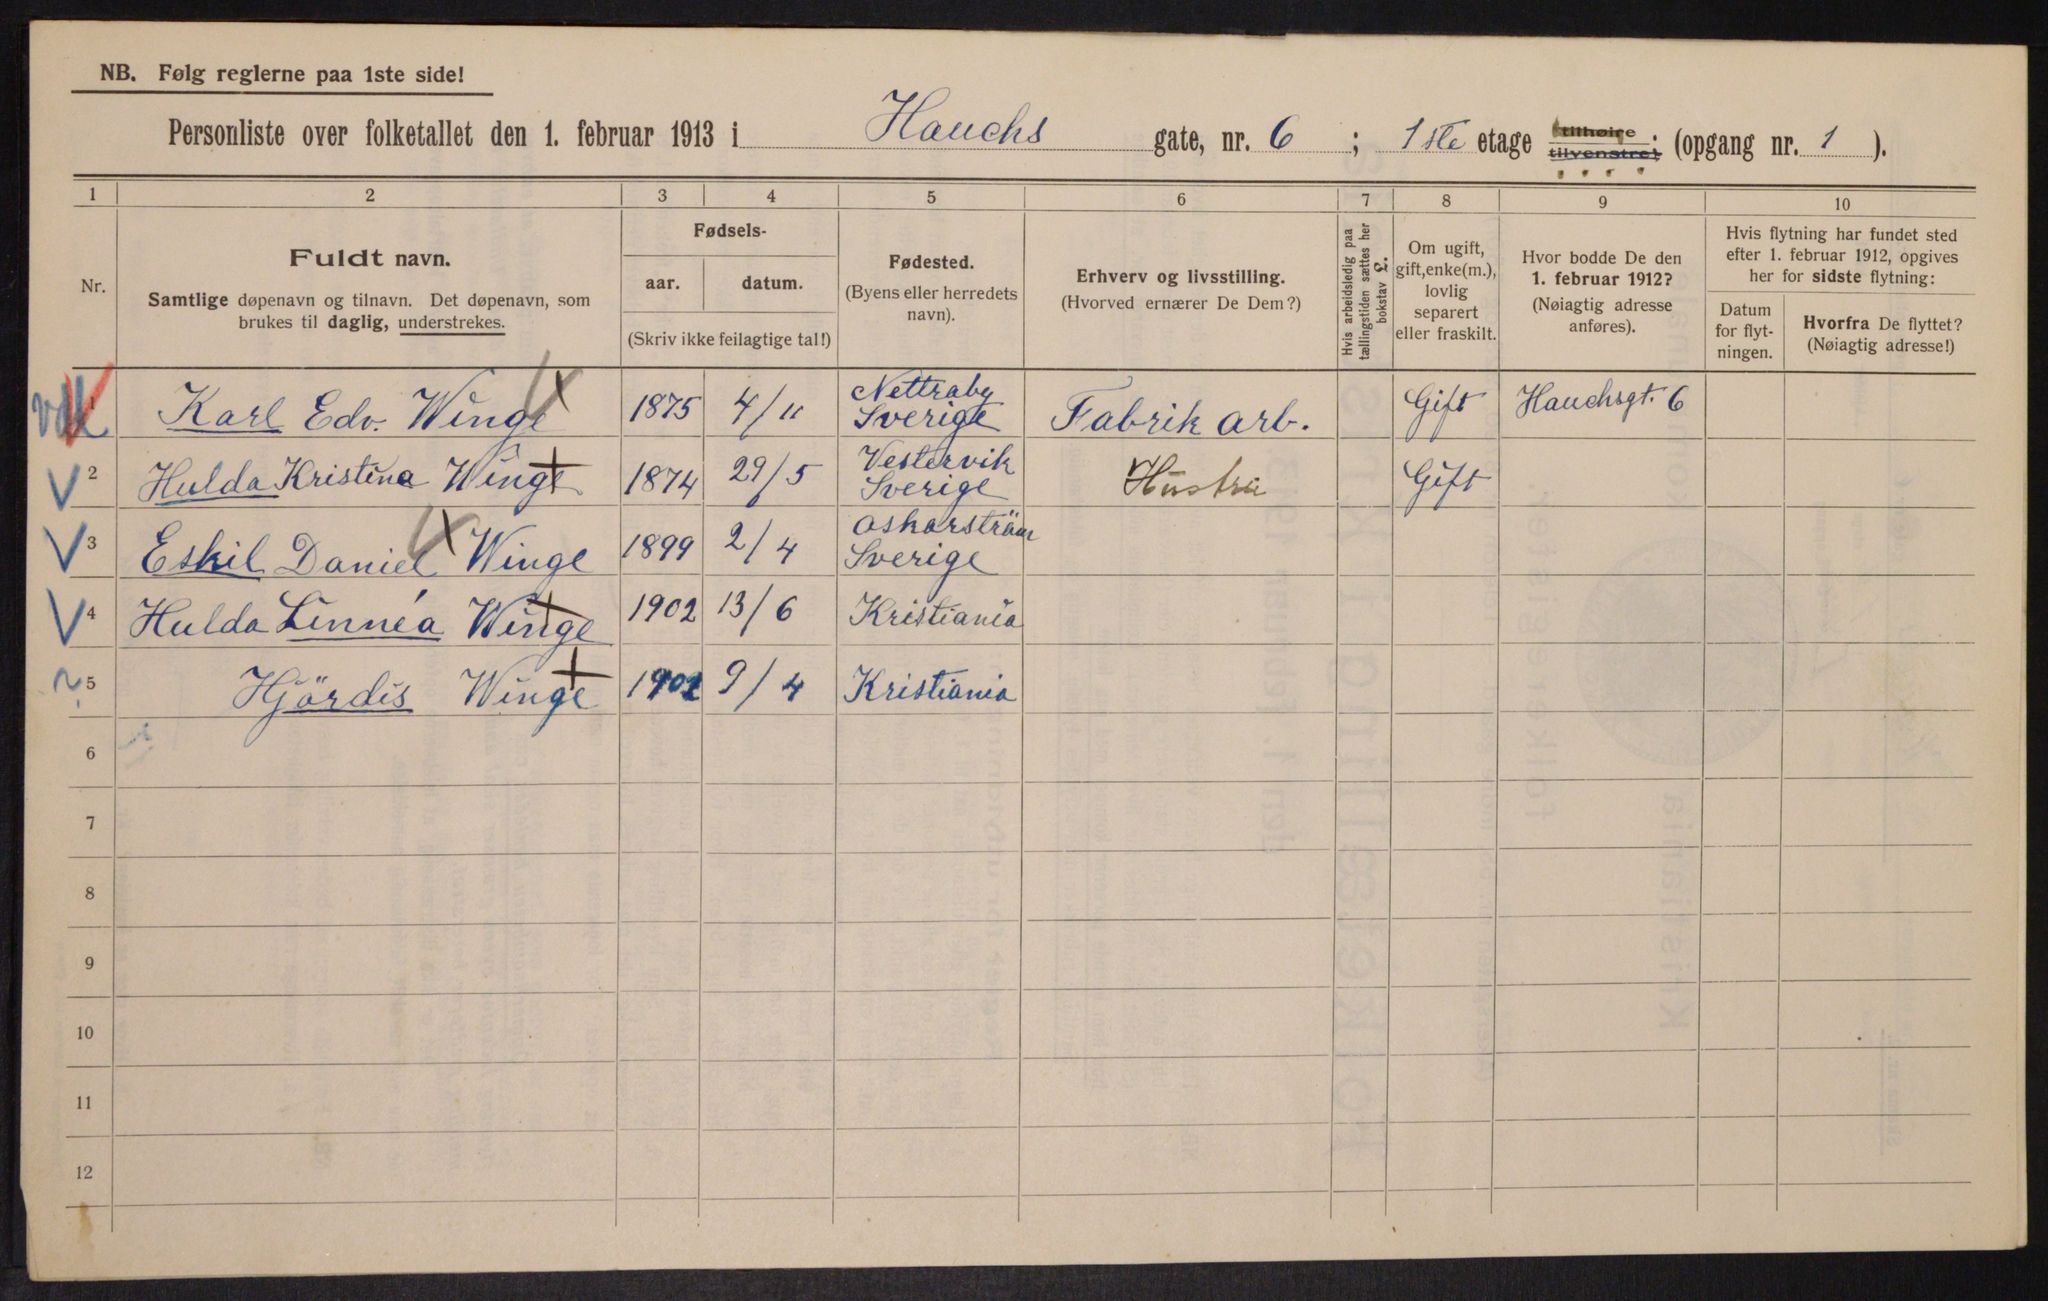 NB. Følg reglerne paa 1ste side!
Personliste over folketallet den 1. februar 1913 i Hauchs gate, nr. 6 ; 1ste etage tilhøire tilvenstre; (opgang nr. 1 ).
1 2 3 4 5 6 7 8 9 10
Nr.
Fuldt navn.
Samtlige døpenavn og tilnavn. Det døpenavn, som
brukes til daglig, understrekes.
Fødsels-
aar. datum.
(Skriv ikke feilagtige tal!)
Fødested.
(Byens eller herredets
navn).
Erhverv og livsstilling.
(Hvorved ernærer De Dem?)
Hvis arbeidsledig paa
tællingstiden sættes her
bokstav £.
Om ugift,
gift, enke(m.),
lovlig
separert
eller fraskilt.
Hvor bodde De den
1. februar 1912?
(Nøiagtig adresse
anføres).
Hvis flytning har fundet sted
efter 1. februar 1912, opgives
her for sidste flytning:
Datum
for flyt-
ningen.
Hvorfra De flyttet?
(Nøiagtig adresse!)
1 Karl Edv. Winge 1875 4/11 Nettraby Sverige Fabrik arb. Gift Hauchsgt. 6
2 Hulda Kristina Winge 1874 29/5 Vestervik Sverige Hustru Gift
3 Eskil Daniel Winge 1899 2/4 Oskarsträm Sverige
4 Hulda Linnéa Winge 1902 13/6 Kristiania
5 Hjördis Winge 9/4 Kristiania
6
7
8
9
10
11
12